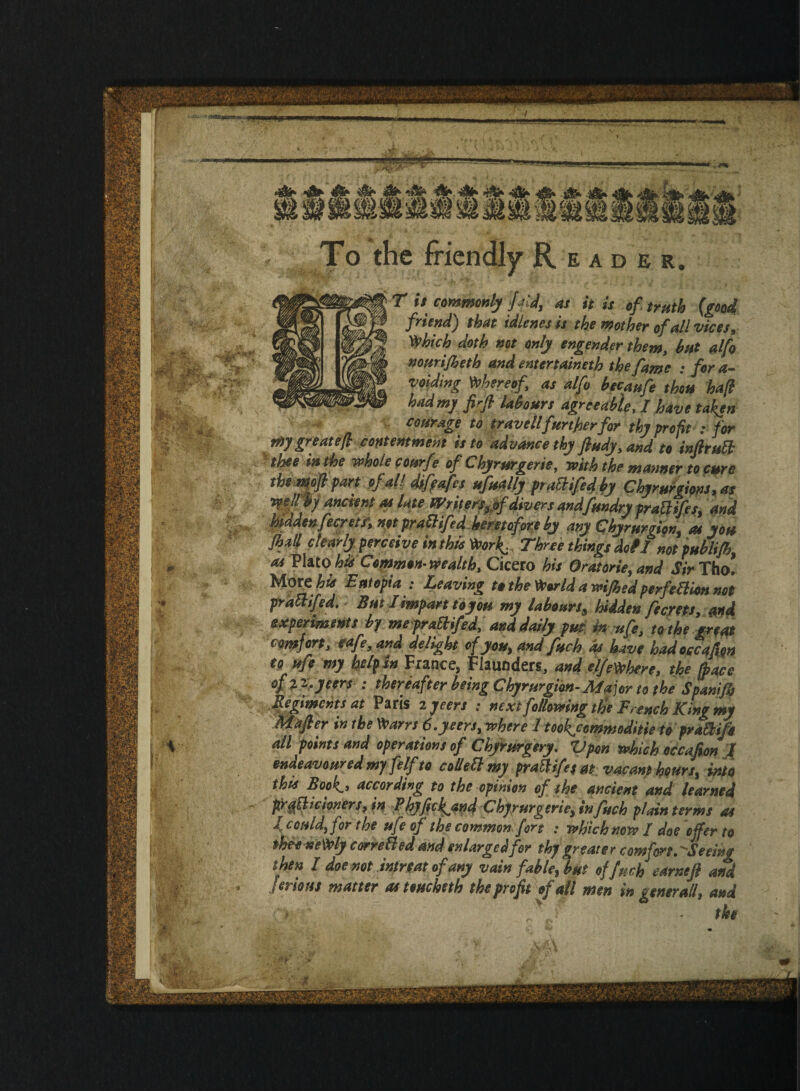 To the friendly READER.
IT is commonly ſaid, as it is of truth (good
friend) that idlenes is the mother of all vices,
Which doth not only engender them, but alſo
nouriſheth and entertaineth the ſame : for a-
voiding Whereof, as alſo becauſe thou haſt
had my firſt labours agreeable, I have taken
courage to travell further for thy profit : for
my greateſt contentment is to advance thy ſtudy, and to inſtruct
thee in the whole courſe of Chyrurgerie, with the manner to cure
the moſt part of all diſeaſes uſually practiſed by Chyrurgions, as
well by ancient as late Writers, of divers and ſundry practiſes, and
hidden ſecrets, not practiſed heretofore by any Chyrurgion, as you
ſhall clearly perceive in this Work. Three things do I not publiſh,
as Plato his Common-wealth, Cicero his Oratorie, and Sir Tho.
More his Eutopia : Leaving to the World a wiſhed perfection not
practiſed. But I impart to you my labours, hidden ſecrets, and
experiments by me practiſed, and daily put in uſe, to the great
comfort, eaſe, and delight of you, and ſuch as have had occaſion
to uſe my help in France, Flaunders, and elſeWhere, the ſpace
of 22. yeers : thereafter being Chyrurgion-Major to the Spaniſh
Regiments at Paris 2 yeers : next following the French King my
Maſter in the Warrs 6. yeers, where I took commoditie to practiſe
all points and operations of Chyrurgery. Upon which occaſion I
endeavoured my ſelf to collect my practiſes at vacant hours, into
this Book, according to the opinion of the ancient and learned
practicioners, in Phyſick and Chyrurgerie, in ſuch plain terms as
I could, for the uſe of the common ſort : which now I doe offer to
thee neWly corrected and enlarged for thy greater comfort. Seeing
then I doe not intreat of any vain fable, but of ſuch earneſt and
ſerious matter as toucheth the profit of all men in generall, and
the